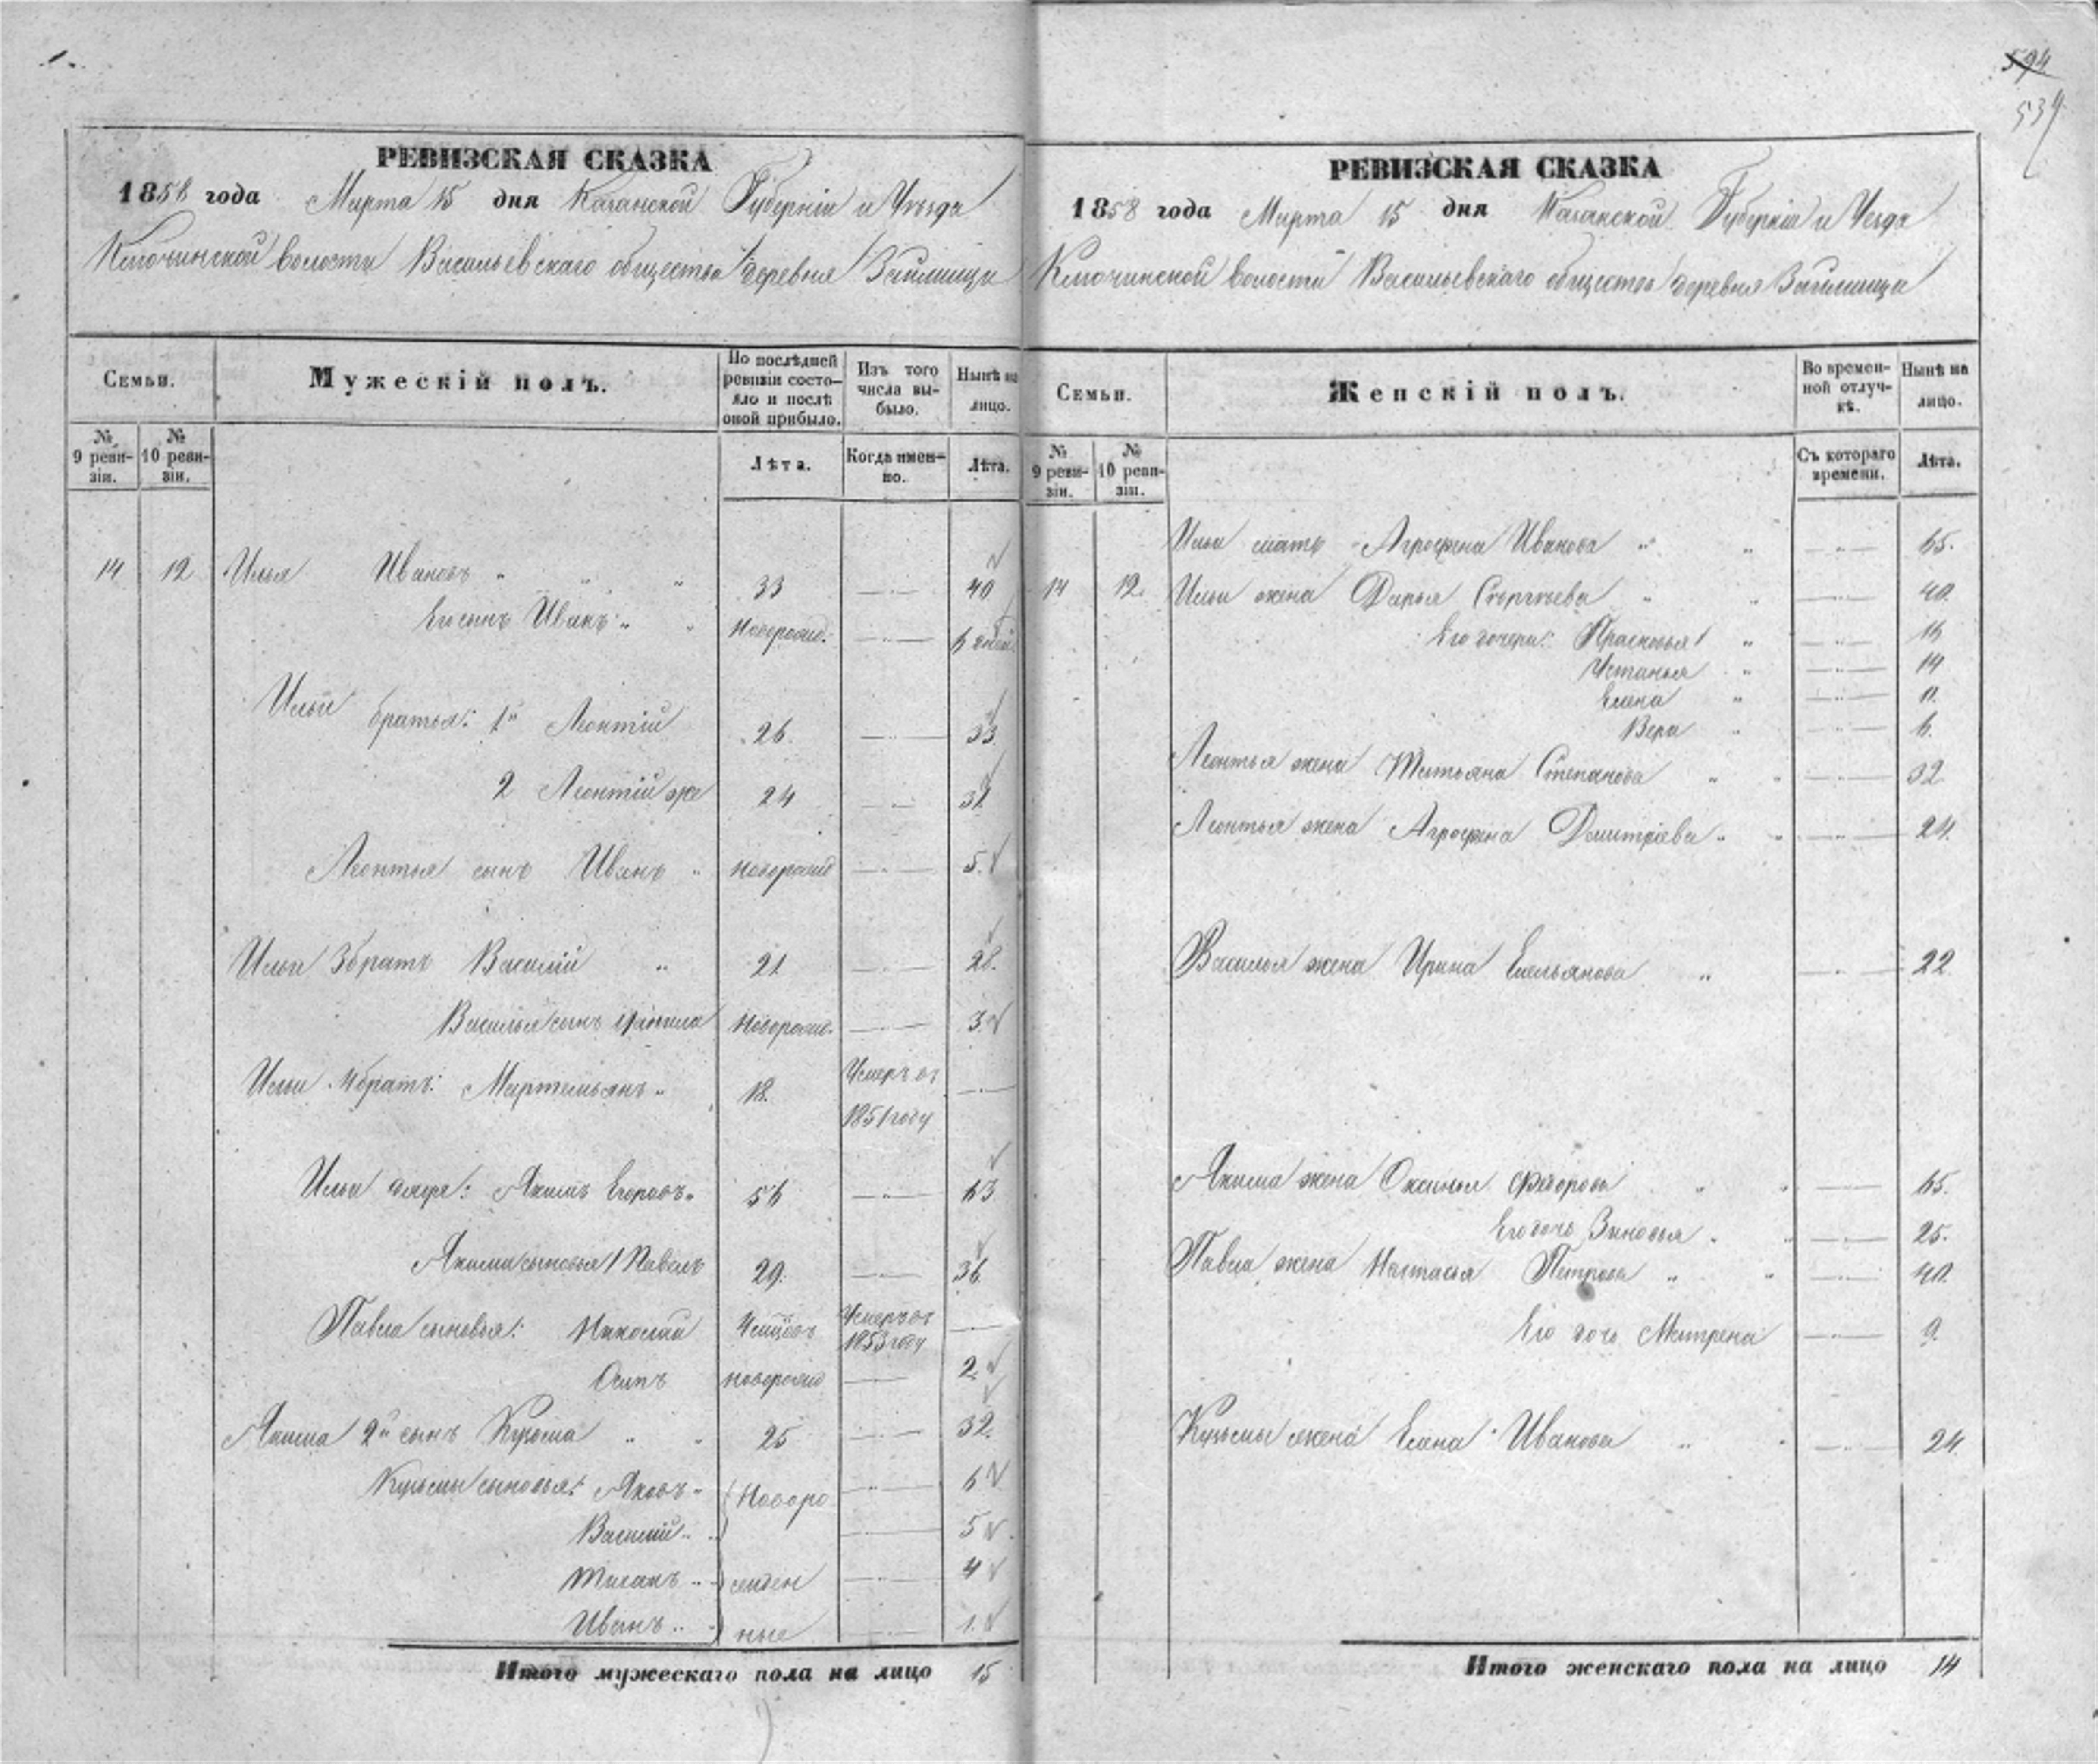 594
534
РЕВИЗСКАЯ СКАЗКА
1858 года Марта 15 дня Казанской Губерніи и Уѣзда
Ключинской волости Васильевскаго общества деревня Займища
Семьи.
Мужескій полъ.
По послѣдней ревизіи состо-
яло и послѣ
оной прибыло.
Изъ того
числа вы-
было.
Нынѣ на
лицо.
№
9 реви-
зіи.
№
10 реви-
зіи.
Лѣта.
Когда имен-
но.
Лѣта.
14 12 Илья Ивановъ 33 40
Его сынъ Иванъ новорожд. 6 дней
Ильи братья: 1й Леонтій 26 33
2 Леонтій же 24 31
Леонтья сынъ Иванъ новорожд 5
Ильи 3 братъ Василій 21 28
Василья сынъ новорожд. 3
Ильи 4 братъ: Мартемьянъ 18 Умеръ въ
1851 году
Ильи дядя: Якимъ Егоровъ 56 63
Якима сыновья 1 Павелъ 29 36
Павла сыновья: Николай Умеръ въ
1853 году
Осипъ новорожд 2
Якима 2й сынъ Кузьма 25 32
Кузьмы сыновья: Яковъ Новоро 6
Василій 5
жден 4
Иванъ ные 1
Итого мужескаго пола на лицо 15
РЕВИЗСКАЯ СКАЗКА
1858 года Марта 15 дня Казанской Губерніи и Уезда
Ключинской волости Васильевскаго общества деревня Займища
Семьи.
Женскій полъ.
Во времен-
ной отлуч-
кѣ.
Нынѣ на
лицо.
№
9 реви-
зіи.
№
10 реви-
зіи.
Съ котораго
времени.
Лѣта.
Ильи мать Агрофена Иванова 65.
14 12. Ильи жена Дарья Сергѣева 40.
Его дочери: Прасковья 16
Устинья 14
Елена 11.
Вера 6.
Леонтья жена Татьяна Степанова 32
Леонтья жена Агрофена Дмитріева 24.
Василья жена Ирина Емельянова 22
Якима жена Оксинья Федорова 65.
Его дочь Зиновья 25.
Павла жена Настасья Петрова 40.
Его дочь Матрена 9.
Кузьмы жена Елена Иванова 24.
Итого женскаго пола на лицо 14